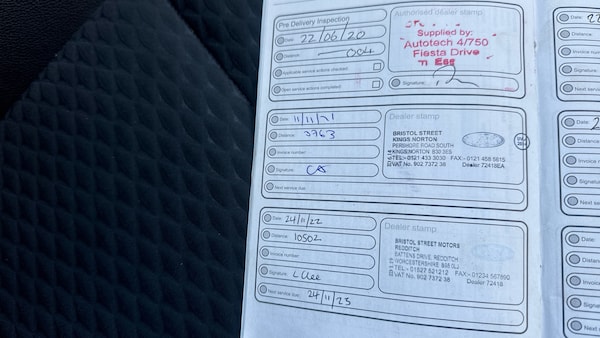 Pre Delivery Inspection
Date: 22/06/20
Distance: 004
Applicable service actions checked:
Open service actions completed:
Authorised dealer stamp
Supplied by:
Autotech 4/750
Fiesta Drive
Signature:
Date: 11/11/21
Distance: 3763
Invoice number:
Signature:
Next service due:
Dealer stamp
BRISTOL STREET
KINGS NORTON
PERSHORE ROAD SOUTH
KINGS NORTON B30 3ES
TEL:- 0121 433 3030 FAX:- 0121 458 5615
VAT No. 902 7372 38 Dealer 72418EA
Date: 24/11/22
Distance: 10502
Invoice number:
Signature:
Next service due: 24/11/23
Dealer stamp
BRISTOL STREET MOTORS
REDDITCH
BATTENS DRIVE, REDDITCH
WORCESTERSHIRE B98 0LJ
TEL:- 01527 521212 FAX:- 01234 567890
VAT No. 902 7372 38 Dealer 72418
Date:
Distance
Invoice nu
Signature
Next servi
Date:
Distance
Invoice
Signatu
Next se
Date:
Distan
Invoice
Signat
Next s